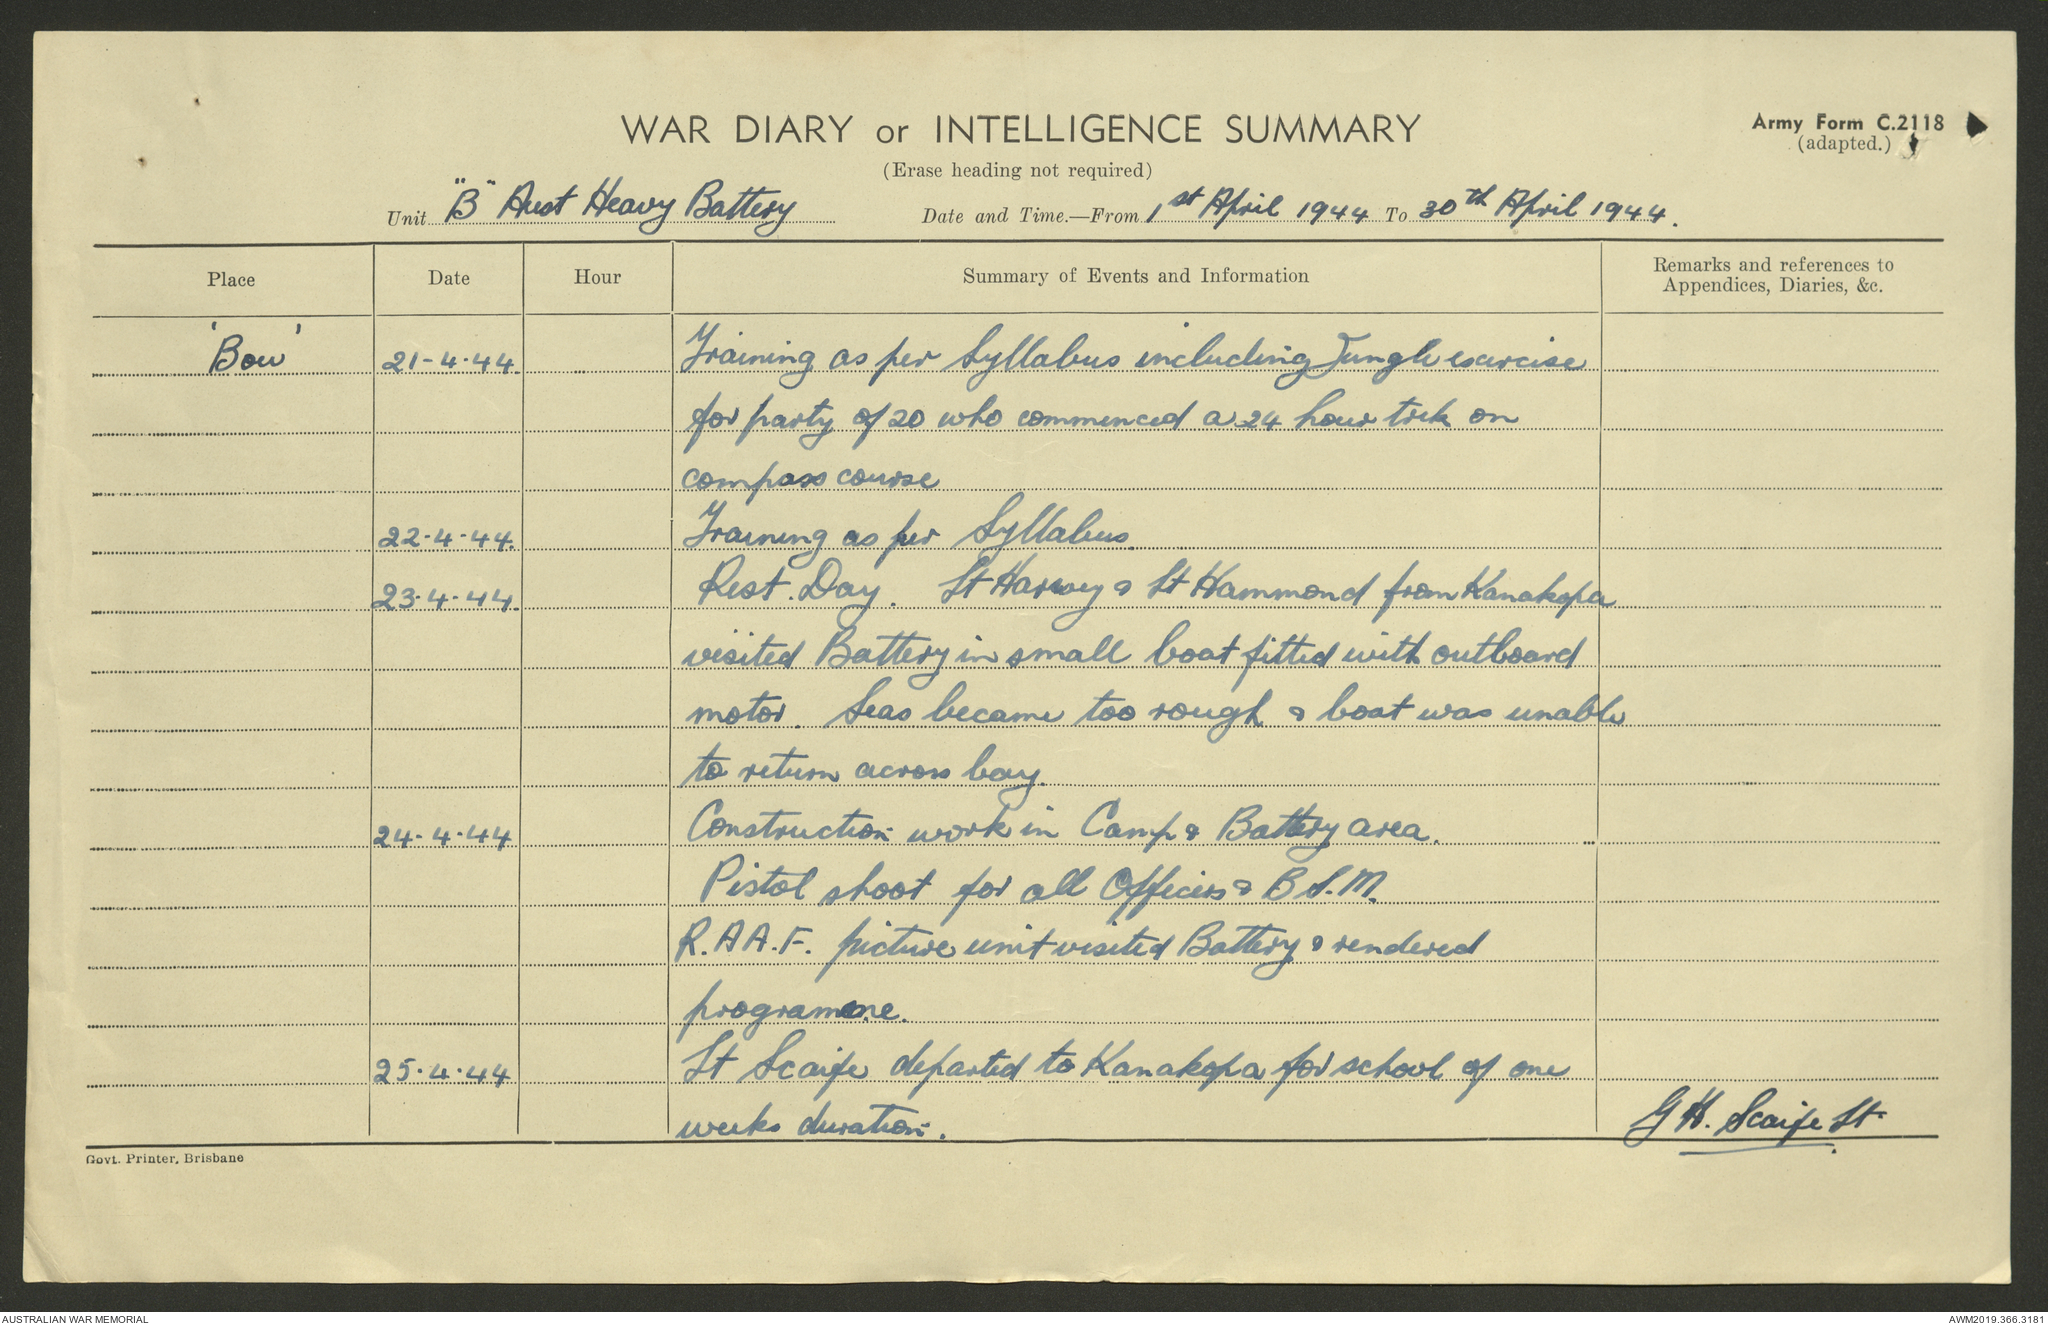 WAR DIARY or INTELLIGENCE SUMMARY
Army Form C.2118
(adapted.)
(Erase heading not required)
Unit "B" Aust Heavy Battery Date and Time.—From 1st April 1944 To 30th April 1944.
Place Date Hour Summary of Events and Information Remarks and references to
Appendices, Diaries, &c.
'Bow' 21-4-44. Training as per Syllabus including Jungle exercise
for party of 20 who commenced a 24 hour trek on
compass course
22-4-44. Training as per Syllabus.
23-4-44. Rest Day. Lt Harvey & Lt Hammond from Kanakopa
visited Battery in small boat fitted with outboard
motor. Seas became too rough & boat was unable
to return across bay.
24-4-44 Construction work in Camp & Battery area.
Pistol shoot for all Officers & B.S.M.
R.A.A.F. picture unit visited Battery & rendered
programme.
25-4-44 Lt Scaife departed to Kanakopa for school of one
weeks duration.
G H. Scaife Lt.
Govt. Printer, Brisbane
AUSTRALIAN WAR MEMORIAL
AWM2019.366.3181